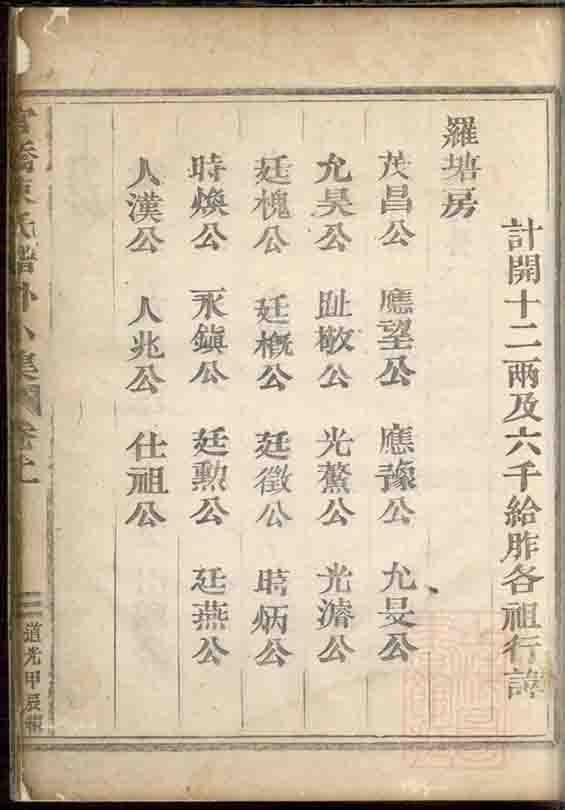 計開十二兩及六千給胙各祖行諱
羅塘房
茂昌公 應望公 應豫公 允旻公
允昊公 趾敬公 光鰲公 光濬公
廷槐公 廷概公 廷徵公 時炳公
時煥公 永鎮公 廷勲公 廷燕公
人漢公 人兆公 仕祖公
氏譜外
道光甲辰